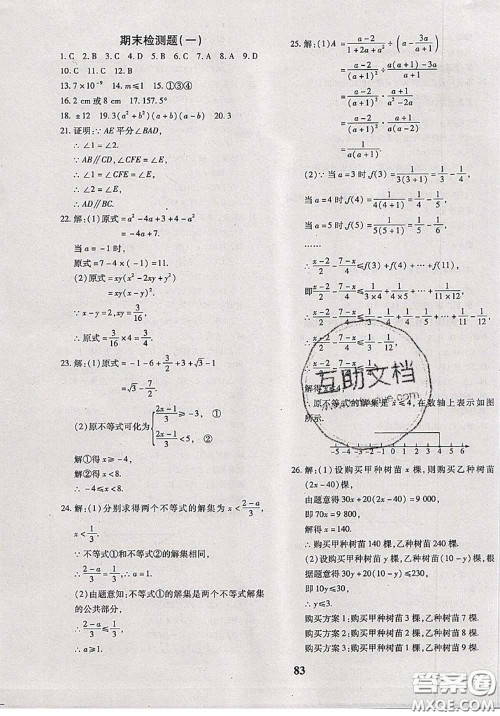 期末检测题(一)
1. C 2. B 3. C 4. B 5. C 6. B 7. A 8. D 9. A
10. C 11. C 12. B
13. 7×10⁻⁹ 14. m≤1 15. ①③④
16. 2 cm 或 8 cm 17. 157.5°
18. ±12 19. 3(a²+b²)(a+b)(a-b) 20. 3
21. 证明:∵AE平分∠BAD,
∴∠1=∠2.
∵AB∥CD,∠CFE=∠E,
∴∠1=∠CFE=∠E.
∴∠2=∠E.
22. 解:(1)原式=a²-4a+3+4-a²
=-4a+7.
当a=-1时,
原式=7-4×(-1)=11.
(2)原式=xy(x²-2xy+y²)
=xy(x-y)².
∵x-y=2,xy=3/16,
∴原式=3/16×4=3/4.
23. 解:(1)原式=-1-6+3/2+√3-1
=√3-13/2.
(2)原不等式可化为{(2x-1)/3>-3, ① (2x-1)/3≤5. ②
解①得x≥-4.
解②得x<8.
∴-4≤x<8.
24. 解:(1)分别求得两个不等式的解集为x<(2-a)/3,
x<1/3.
∵不等式①和不等式②的解集相同,
∴(2-a)/3=1/3.∴a=1.
(2)由题意知:不等式①的解集是不等式②的解集的公共部分,
∴(2-a)/3≤1/3.
∴a≥1.
25. 解:(1)A=(a-2)/(1+2a+a²)÷(a-3a/(a+1))
=(a-2)/(a+1)²÷(a(a+1)-3a)/(a+1)
=(a-2)/(a+1)²·(a+1)/(a(a-2))
=1/(a(a+1)).
(2)∵当a=3时,f(3)=1/(3(3+1))=1/3-1/4,
当a=4时,f(4)=1/(4(4+1))=1/4-1/5,
当a=5时,f(5)=1/(5(5+1))=1/5-1/6,
……
∴(x-2)/2-(7-x)/4≤f(3)+f(4)+…+f(11),
即(x-2)/2-(7-x)/4≤1/(3×4)+1/(4×5)+…+1/(11×12),
∴(x-2)/2-(7-x)/4≤1/3-1/4+1/4-1/5+…+1/11-1/12,
∴(x-2)/2-(7-x)/4≤1/3-1/12,
解得x≤4,
∴原不等式的解集是x≤4,在数轴上表示如图所示.
-5 -4 -3 -2 -1 0 1 2 3 4 5 6
26. 解:(1)设购买甲种树苗x棵,则购买乙种树苗(2x-40)棵.
由题意得30x+20(2x-40)=9 000,
即70x=9 800,
解得x=140.
∴购买甲种树苗140棵,乙种树苗240棵.
(2)设购买甲种树苗y棵,乙种树苗(10-y)棵.
根据题意得30y+20(10-y)≤230,
∴y≤3.
购买方案1:购买甲种树苗3棵,乙种树苗7棵.
购买方案2:购买甲种树苗2棵,乙种树苗8棵.
购买方案3:购买甲种树苗1棵,乙种树苗9棵.
83
互助文档
答案圈
MXQE.COM